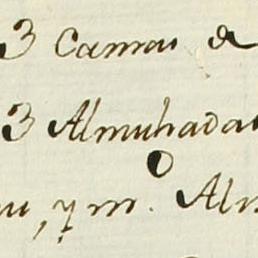 3 Camas d
3 Almuhada
y m. Alm